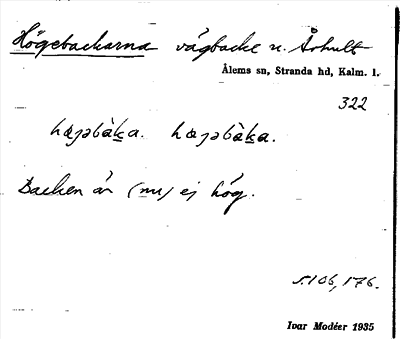 Högebackarna vägbacke n. Århult
Ålems sn, Stranda hd, Kalm. l.
322
hæɟəbàka. hæɟəbàka.
Backen är (nu) ej hög.
S. 106, 176.
Ivar Modéer 1935